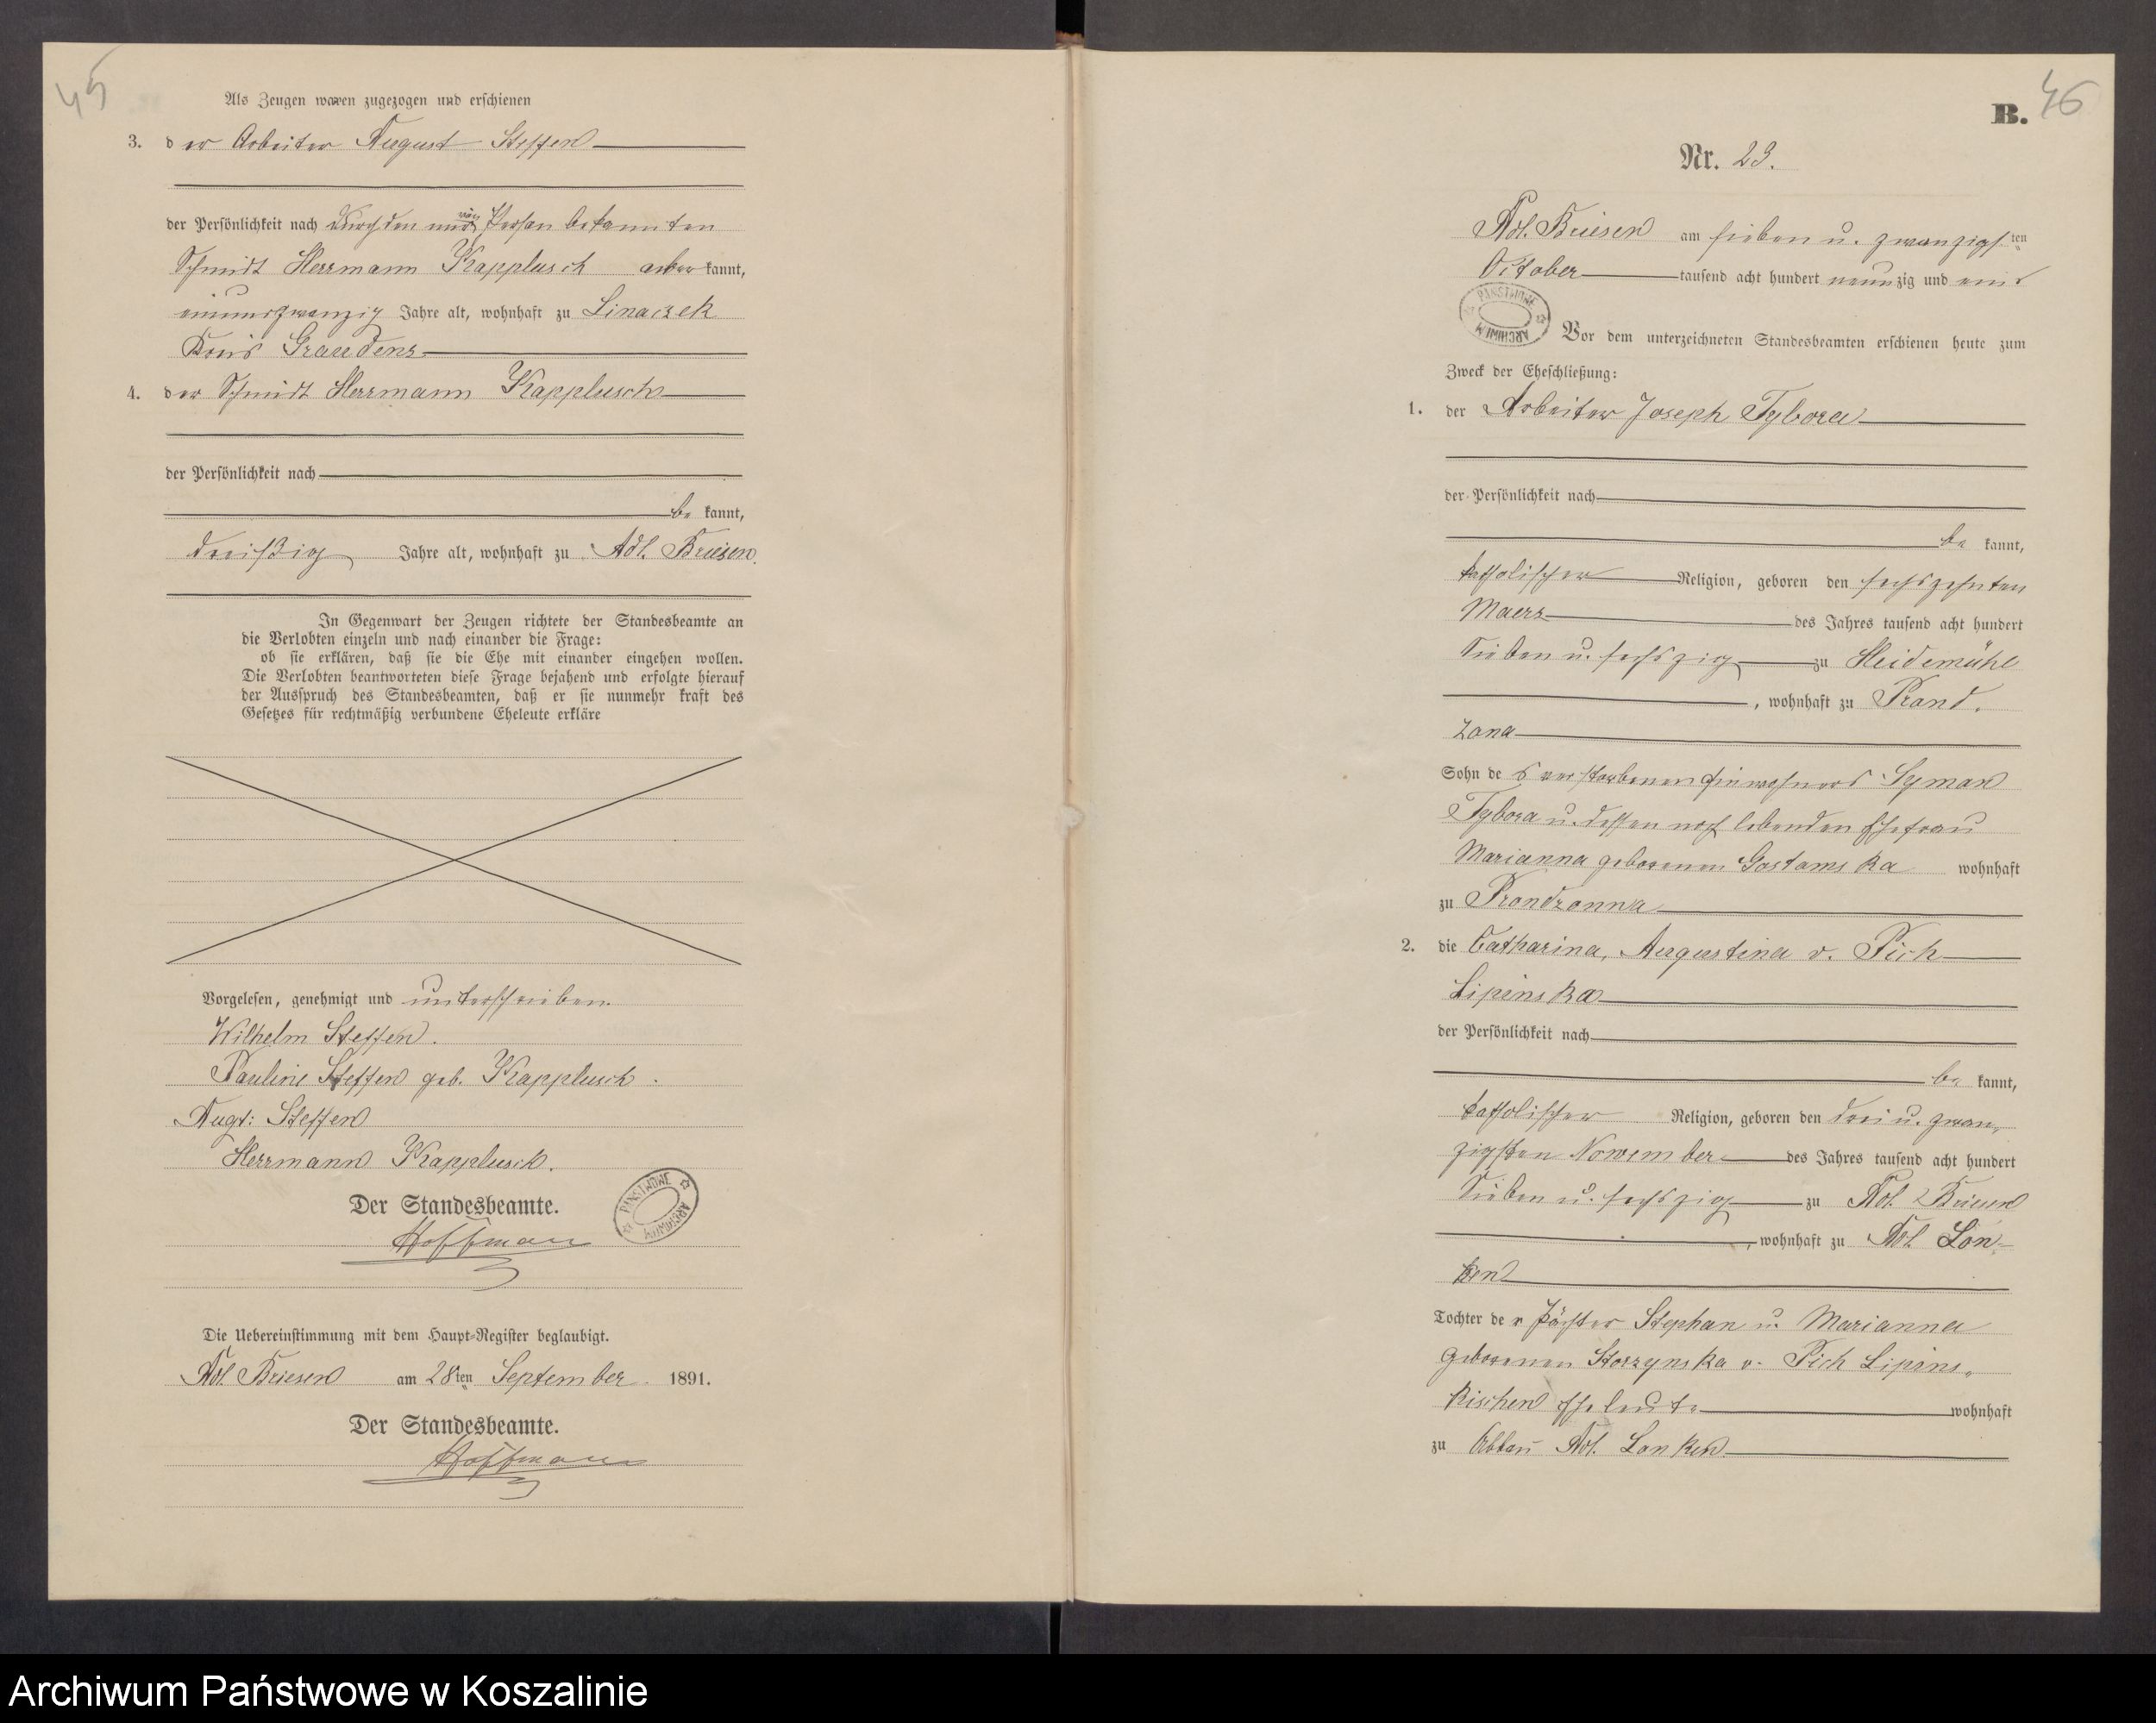 45
Als Zeugen waren zugezogen und erschienen
3. der Arbeiter August Steffen
der Persönlichkeit nach durch den von Person bekannten
Schmidt Herrmann Kapplusch anerkannt,
einundzwanzig Jahre alt, wohnhaft zu
Kreis Graudenz
4. der Schmidt Herrmann Kapplusch
der Persönlichkeit nach
be kannt,
dreißig Jahre alt, wohnhaft zu Adl. Briesen.
In Gegenwart der Zeugen richtete der Standesbeamte an
die Verlobten einzeln und nach einander die Frage:
ob sie erklären, daß sie die Ehe mit einander eingehen wollen.
Die Verlobten beantworteten diese Frage bejahend und erfolgte hierauf
der Ausspruch des Standesbeamten, daß er sie nunmehr kraft des
Gesetzes für rechtmäßig verbundene Eheleute erkläre
Vorgelesen, genehmigt und unterschrieben.
Wilhelm Steffen.
Pauline Steffen geb. Kapplusch.
Augt: Steffen
Herrmann Kapplusch.
Der Standesbeamte.
Hoffmann
ARCHIWUM PAŃSTWOWE
Die Uebereinstimmung mit dem Haupt-Register beglaubigt.
Adl. Briesen am 28ten September 1891.
Der Standesbeamte.
Hoffmann
B. 46
Nr. 23.
Adl. Briesen am sieben u. zwanzigsten
October tausend acht hundert neunzig und eins
ARCHIWUM PAŃSTWOWE
Vor dem unterzeichneten Standesbeamten erschienen heute zum
Zweck der Eheschließung:
1. der Arbeiter Joseph Tybora
der Persönlichkeit nach
be kannt,
katholischer Religion, geboren den sechszehnten
Maerz des Jahres tausend acht hundert
sieben u. sechszig zu Heidemühl
, wohnhaft zu Prond,
zona
Sohn des verstorbenen Einwohners Syman
Tybora u. dessen noch lebenden Ehefrau
Marianna geborenen Gostomska wohnhaft
zu Prondzonna
2. die Catharina, Augustina v. Pich
Lipinska
der Persönlichkeit nach
be kannt,
katholischer Religion, geboren den drei u. zwan,
zigsten November des Jahres tausend acht hundert
sieben u. sechszig zu Adl. Briesen
, wohnhaft zu Adl. Lon-
ken
Tochter der Pächter Stephan u. Marianna
geborenen v. Pich Lipins,
kischen Eheleute wohnhaft
zu Abbau Adl. Lonken
Archiwum Państwowe w Koszalinie